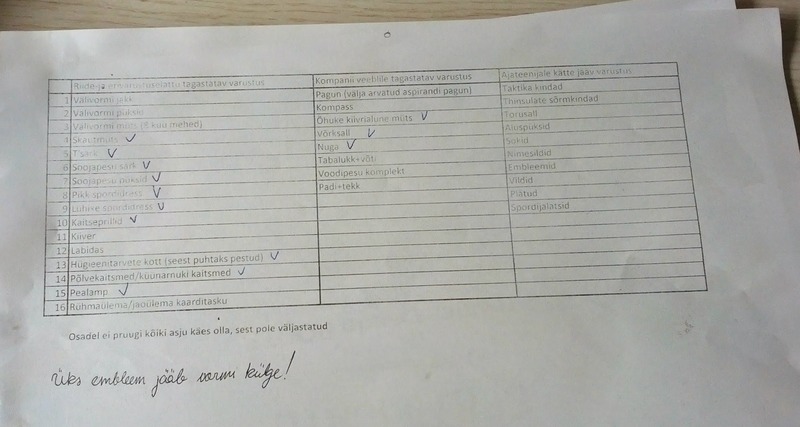 Riide-ja erivarustuselattu tagastatav varustus Kompanii veeblile tagastatav varustus Ajateenijale kätte jääv varustus
1 Välivormi jakk Pagun (välja arvatud aspirandi pagun) Taktika kindad
2 Välivormi püksid Kompass Thinsulate sõrmkindad
3 Välivormi müts (8 kuu mehed) Õhuke kiivrialune müts ✓ Torusall
4 Skautmüts ✓ Võrksall ✓ Aluspüksid
5 T'särk ✓ Nuga ✓ Sokid
6 Soojapesu särk ✓ Tabalukk+võti Nimesildid
7 Soojapesu püksid ✓ Voodipesu komplekt Embleemid
8 Pikk spordidress ✓ Padi+tekk Vildid
9 Lühike spordidress ✓ Plätud
10 Kaitseprillid ✓ Spordijalatsid
11 Kiiver
12 Labidas
13 Hügieenitarvete kott (seest puhtaks pestud) ✓
14 Põlvekaitsmed/küünarnuki kaitsmed ✓
15 Pealamp ✓
16 Rühmaülema/jaoülema kaarditasku
Osadel ei pruugi kõiki asju käes olla, sest pole väljastatud
Üks embleem jääb vormi külge!